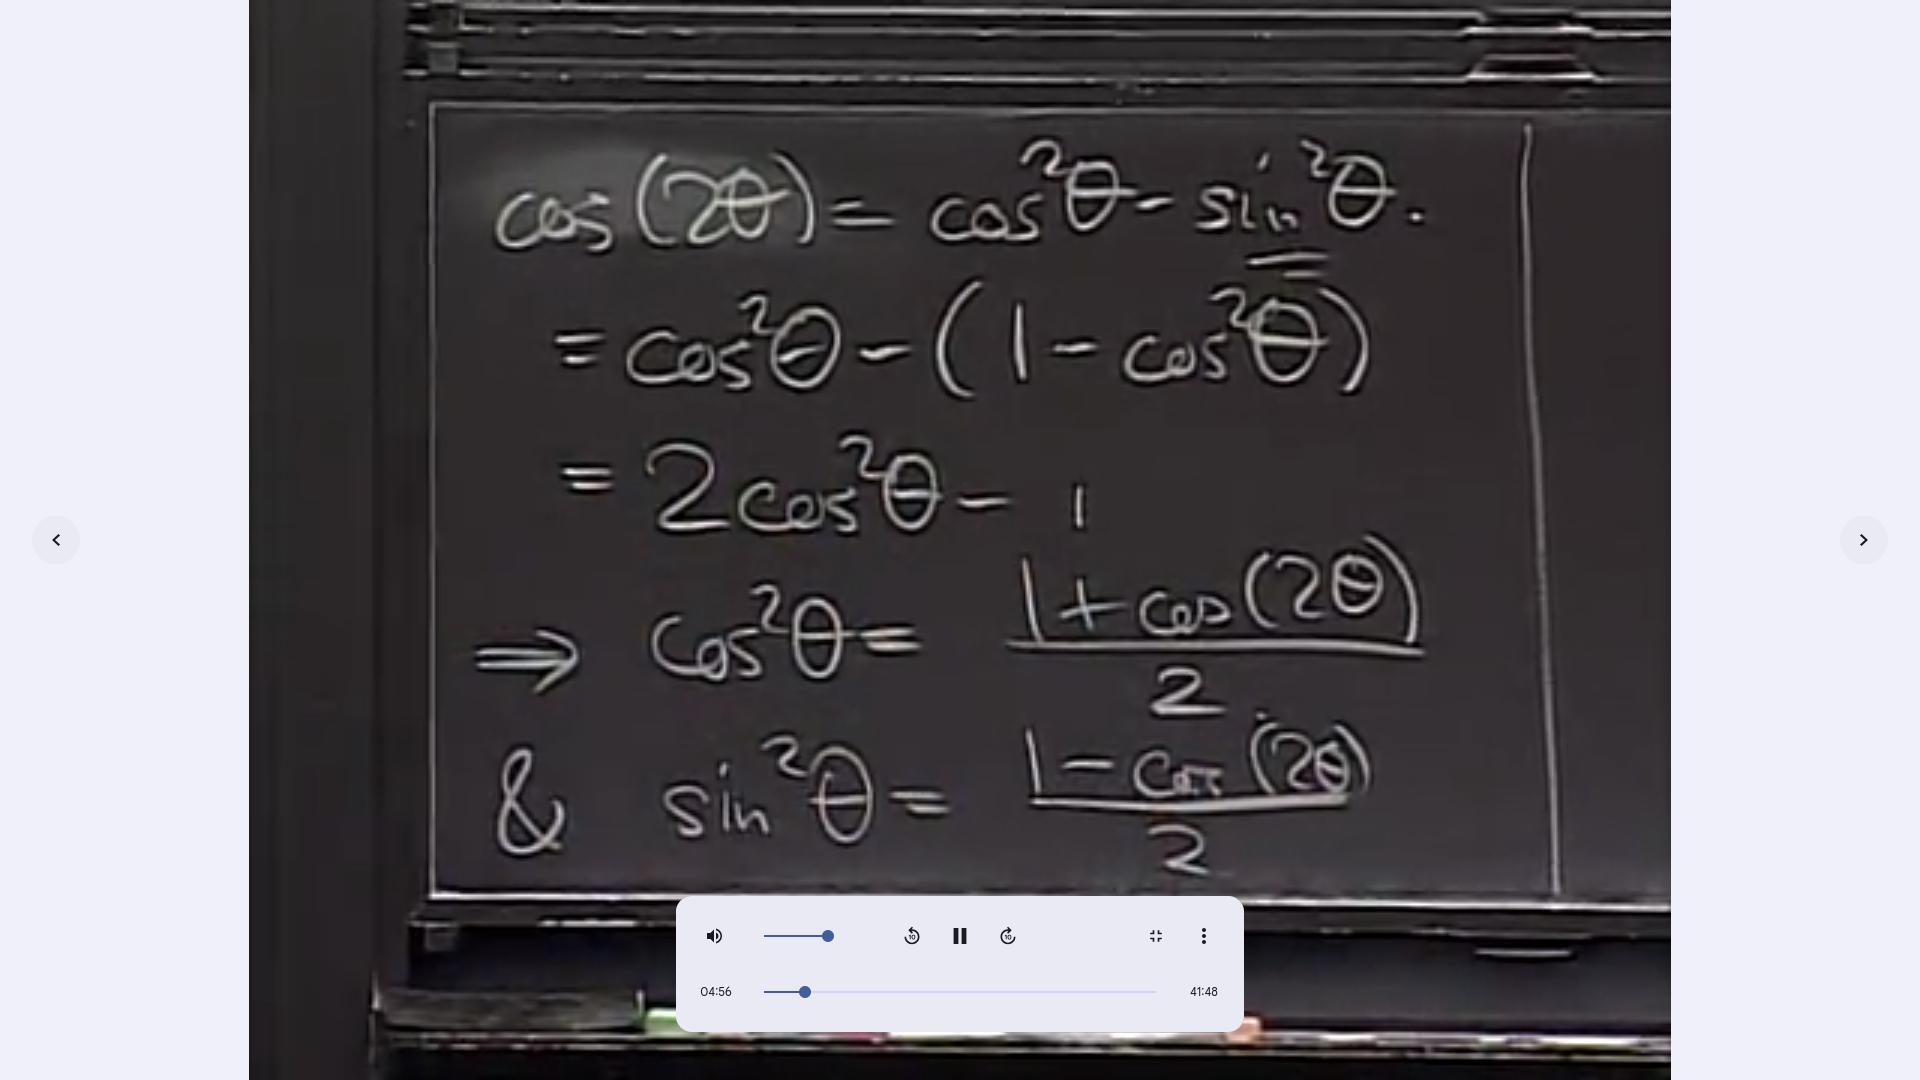 cos(2θ) = cos²θ - sin²θ.
= cos²θ - (1 - cos²θ)
= 2cos²θ - 1
⇒ cos²θ = (1 + cos(2θ))/2
& sin²θ = (1 - cos(2θ))/2
10 10
04:56 41:48